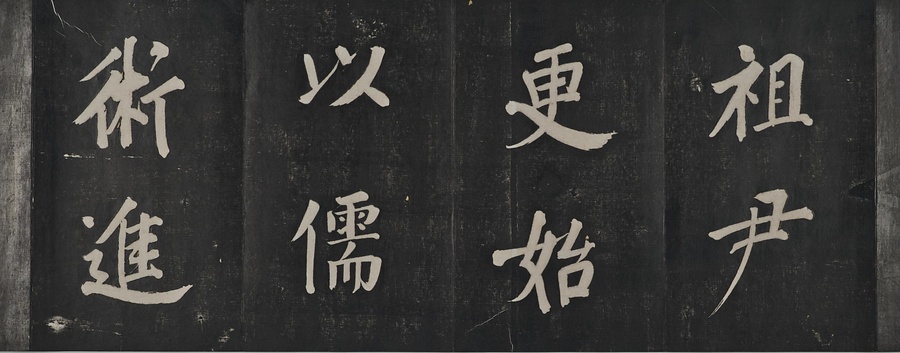 祖尹
更始
以儒
術進